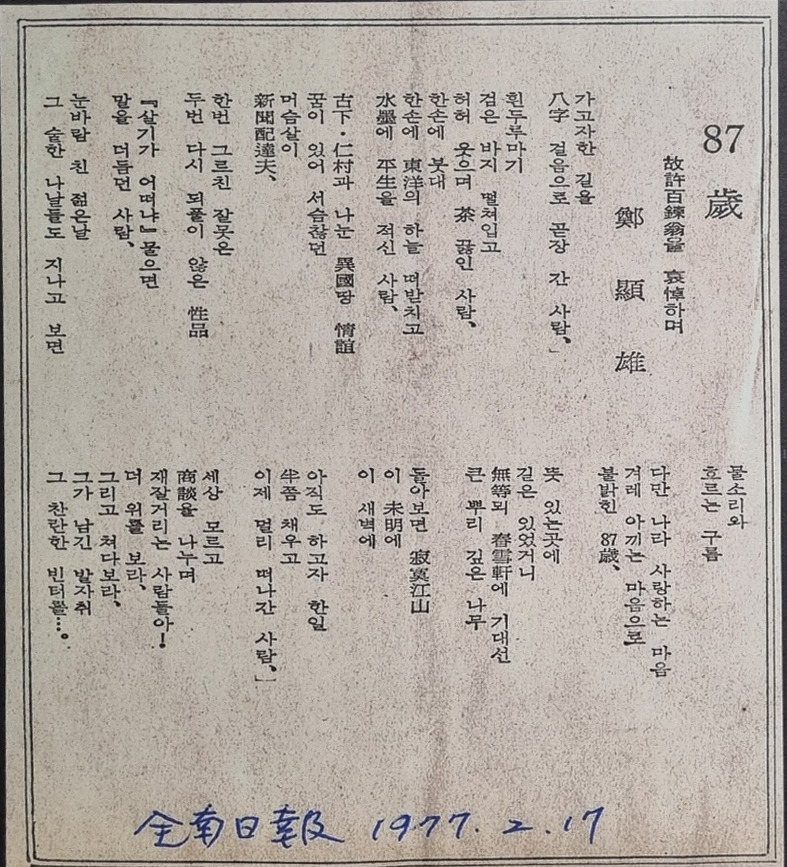 87歲
故許百鍊翁을 哀悼하며
鄭顯雄
가고자한 길을
八字 걸음으로 곧장 간 사람、」
흰두루마기
검은 바지 떨쳐입고
허허 웃으며 茶 끓인 사람、
한손에 붓대
한손에 東洋의 하늘 떠받치고
水墨에 平生을 적신 사람、
古下・仁村과 나눈 異國땅 情誼
꿈이 있어 서슴찮던
머슴살이
新聞配達夫、
한번 그르친 잘못은
두번 다시 되풀이 않은 性品
『살기가 어떠냐』물으면
말을 더듬던 사람、
눈바람 친 젊은날
그 숱한 나날들도 지나고 보면
물소리와
흐르는 구름
다만 나라 사랑하는 마음
겨레 아끼는 마음으로
불밝힌 87歲、
뜻 있는곳에
길은 있었거니
無等되 春雪軒에 기대선
큰 뿌리 깊은 나무
돌아보면 寂寞江山
이 未明에
이 새벽에
아직도 하고자 한일
半쯤 채우고
이제 멀리 떠나간 사람、」
세상 모르고
商談을 나누며
재잘거리는 사람들아!
더 위를 보라、
그리고 쳐다보라、
그가 남긴 발자취
그 찬란한 빈터를…。
全南日報 1977. 2. 17